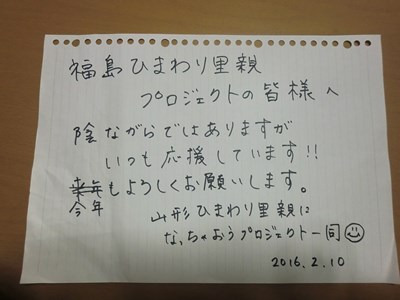 福島ひまわり里親
プロジェクトの皆様へ
陰ながらではありますが
いつも応援しています!!
来年もよろしくお願いします。
今年
山形ひまわり里親に
なっちゃおうプロジェクト一同
2016.2.10